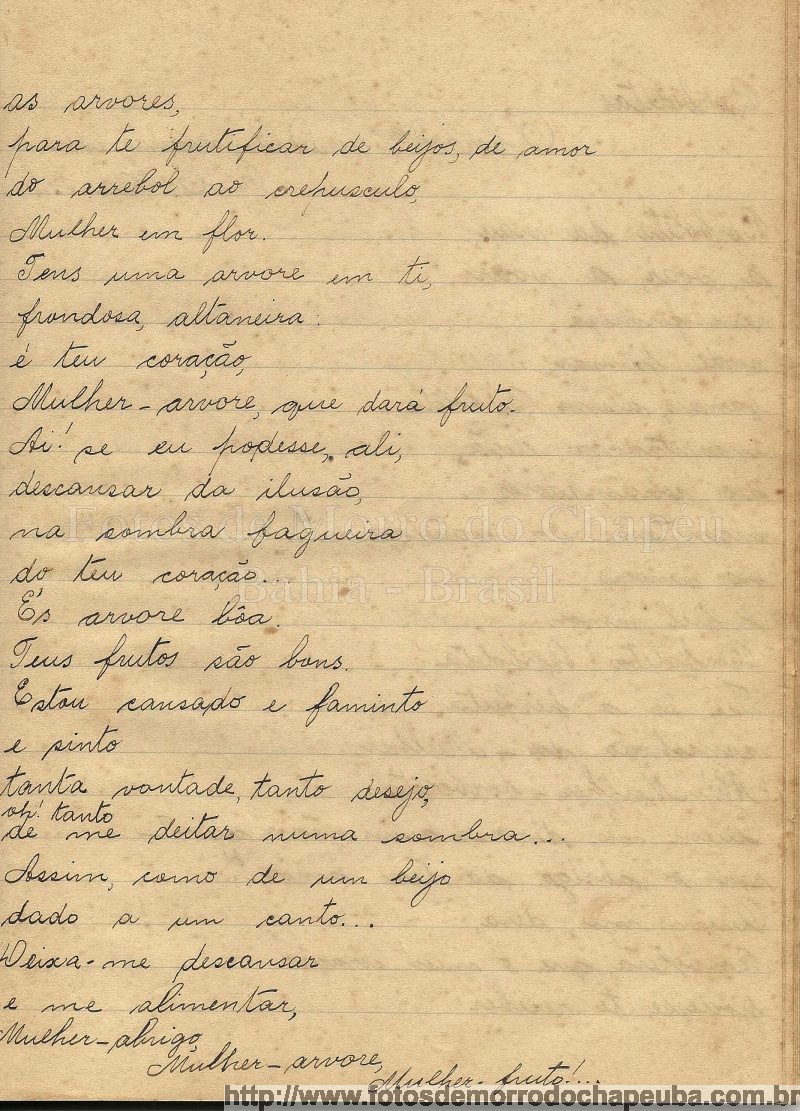 as arvores,
para te frutificar de beijos, de amor
do arrebol ao crepusculo,
Mulher em flor.
Tens uma arvore em ti,
frondosa, altaneira:
é teu coração,
Mulher-arvore, que dará fruto.
Ai! se eu podesse, ali,
descansar da ilusão,
na sombra fagueira
do teu coração...
És arvore bôa.
Teus frutos são bons.
Estou cansado e faminto
e sinto
tanta vontade, tanto desejo,
oh! tanto
de me deitar numa sombra...
Assim, como de um beijo
dado a um canto...
Deixa-me descansar
e me alimentar,
Mulher-abrigo,
Mulher-arvore,
Mulher-fruto!...
Fotos de Morro do Chapéu
Bahia - Brasil
http://www.fotosdemorrodochapeuba.com.br